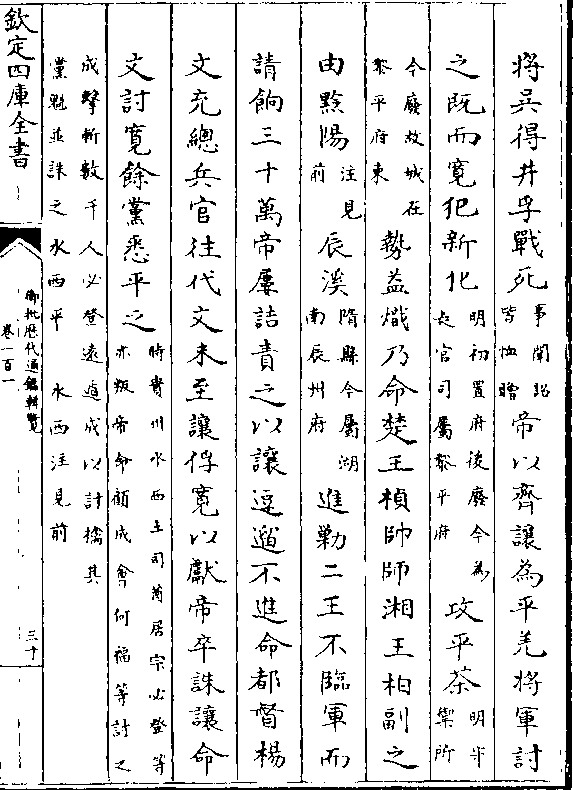 將吳得井孚戰死事聞詔皆恤贈帝以齊讓為平羌將軍討
之既而寛犯新化明初置府後廢今為長官司屬黎平府攻平茶明守禦所
今廢故城在黎平府東勢益熾乃命楚王楨帥師湘王柏副之
由黔陽注見前辰溪隋縣今屬湖南辰州府進勦二王不臨軍而
請餉三十萬帝屢詰責之以讓逗遛不進命都督楊
文充總兵官往代文未至讓俘寛以獻帝卒誅讓命
文討寛餘黨悉平之時貴州水西土司苗居宗必登等亦叛帝命顧成會何福等討之
成擊斬數千人必登遠遁成以計擒其黨並誅之水西平 水西注見前
欽定四庫全書
御批歷代通鑑輯覽
卷一百一
三十